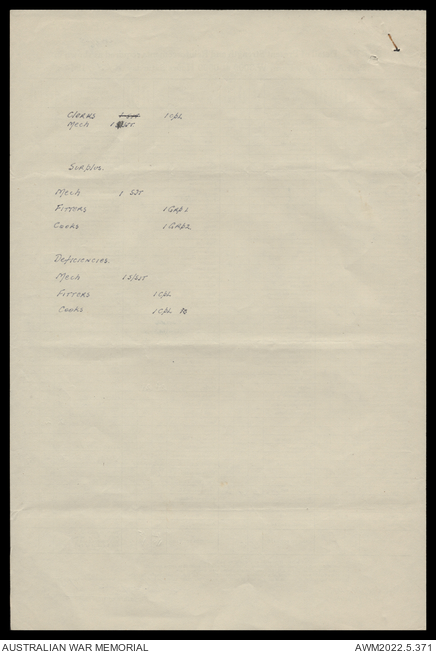 Clerks 1 Cpl
Mech 1 S/SJT
Surplus.
Mech 1 SJT
Fitters 1 Grp1
Cooks 1 Grp2
Deficiencies.
Mech 1 S/SJT
Fitters 1 Cpl
Cooks 1 Cpl
AUSTRALIAN WAR MEMORIAL
AWM2022.5.371